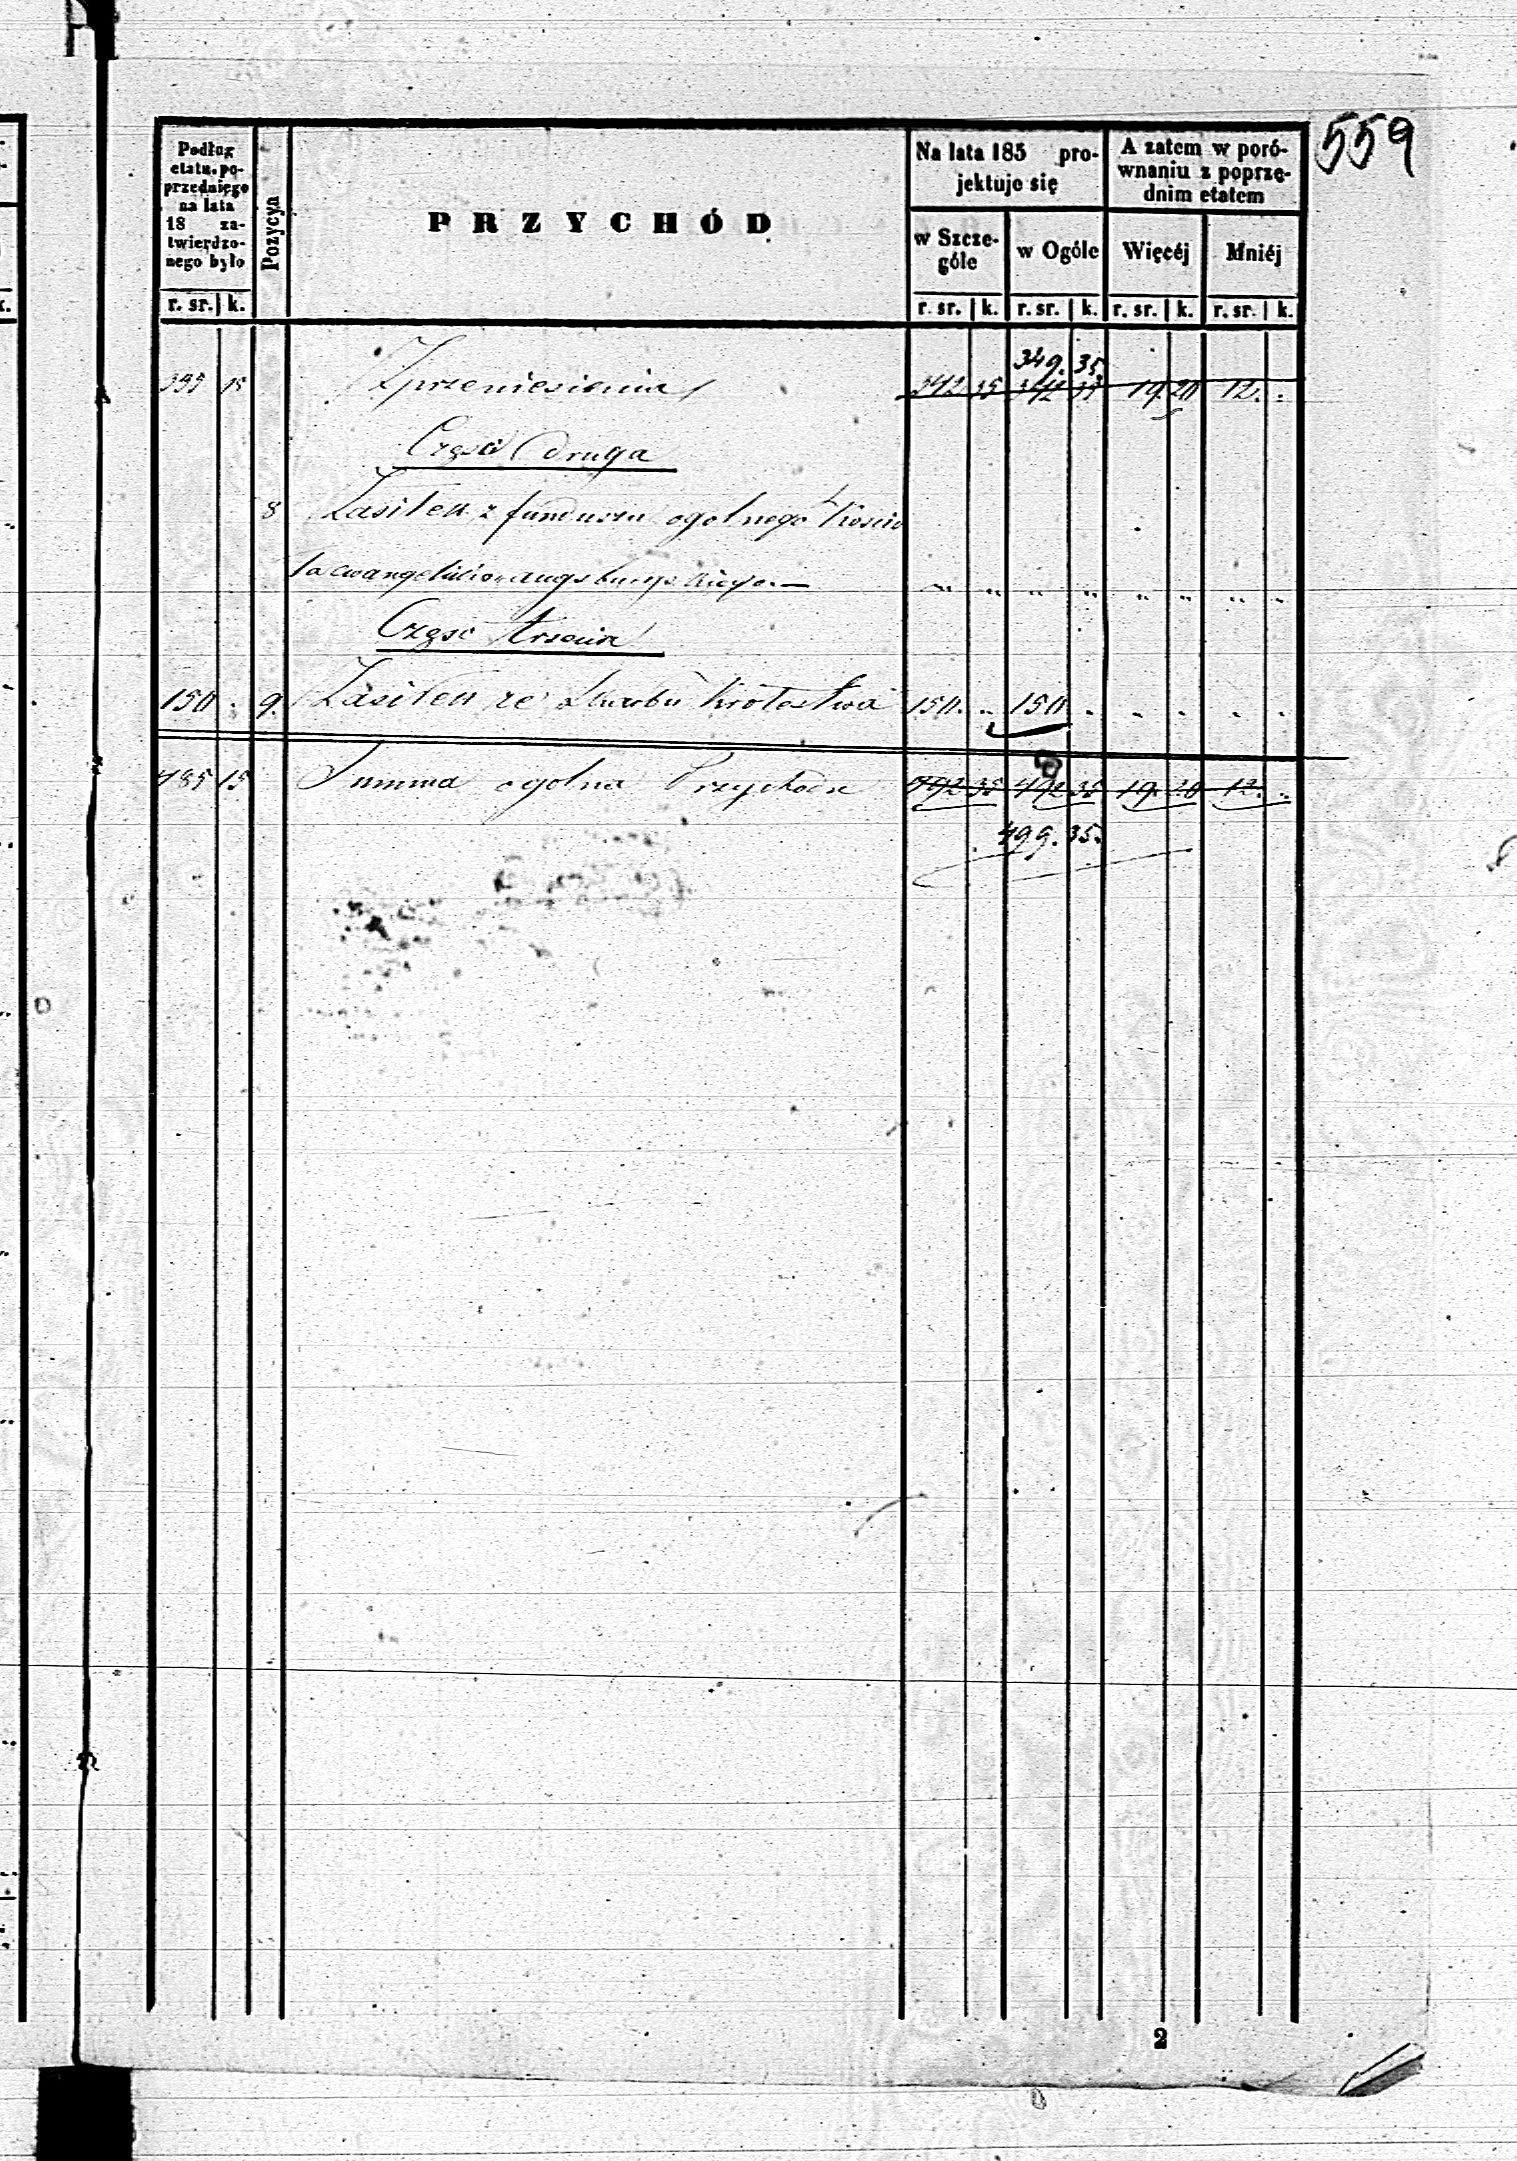 559
Podług etatu poprzedniego na lata 18 zatwierdzonego było
Pozycya
PRZYCHÓD
Na lata 185 projektuje się
A zatem w porównaniu z poprzednim etatem
w Szczególe
w Ogóle
Więcéj
Mniéj
r. sr. k. r. sr. k. r. sr. k. r. sr. k. r. sr. k.
349. 35.
15 Z przeniesienia 342 35 342 35 19. 20 12. .
Część druga
8 Zasiłek z funduszu ogolnego Kościo
ła ewangelicko augsburgskiego.—
Część trzecia
150 . 9. Zasiłek ze Skarbu Krolestwa 150. .. 150 .
485 15 Summa ogolna Przychodu 492 35 492 35 19. 20 12. .
499. 35.
2